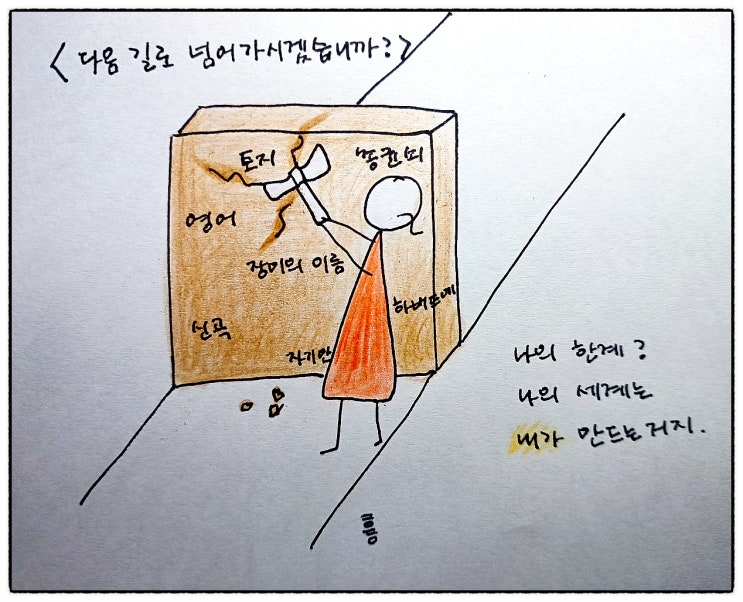 <다음 길로 넘어가시겠습니까?>
토지
총균쇠
영어
장미의 이름
신곡
자기만
나의 한계?
나의 세계는
내가 만드는거지.